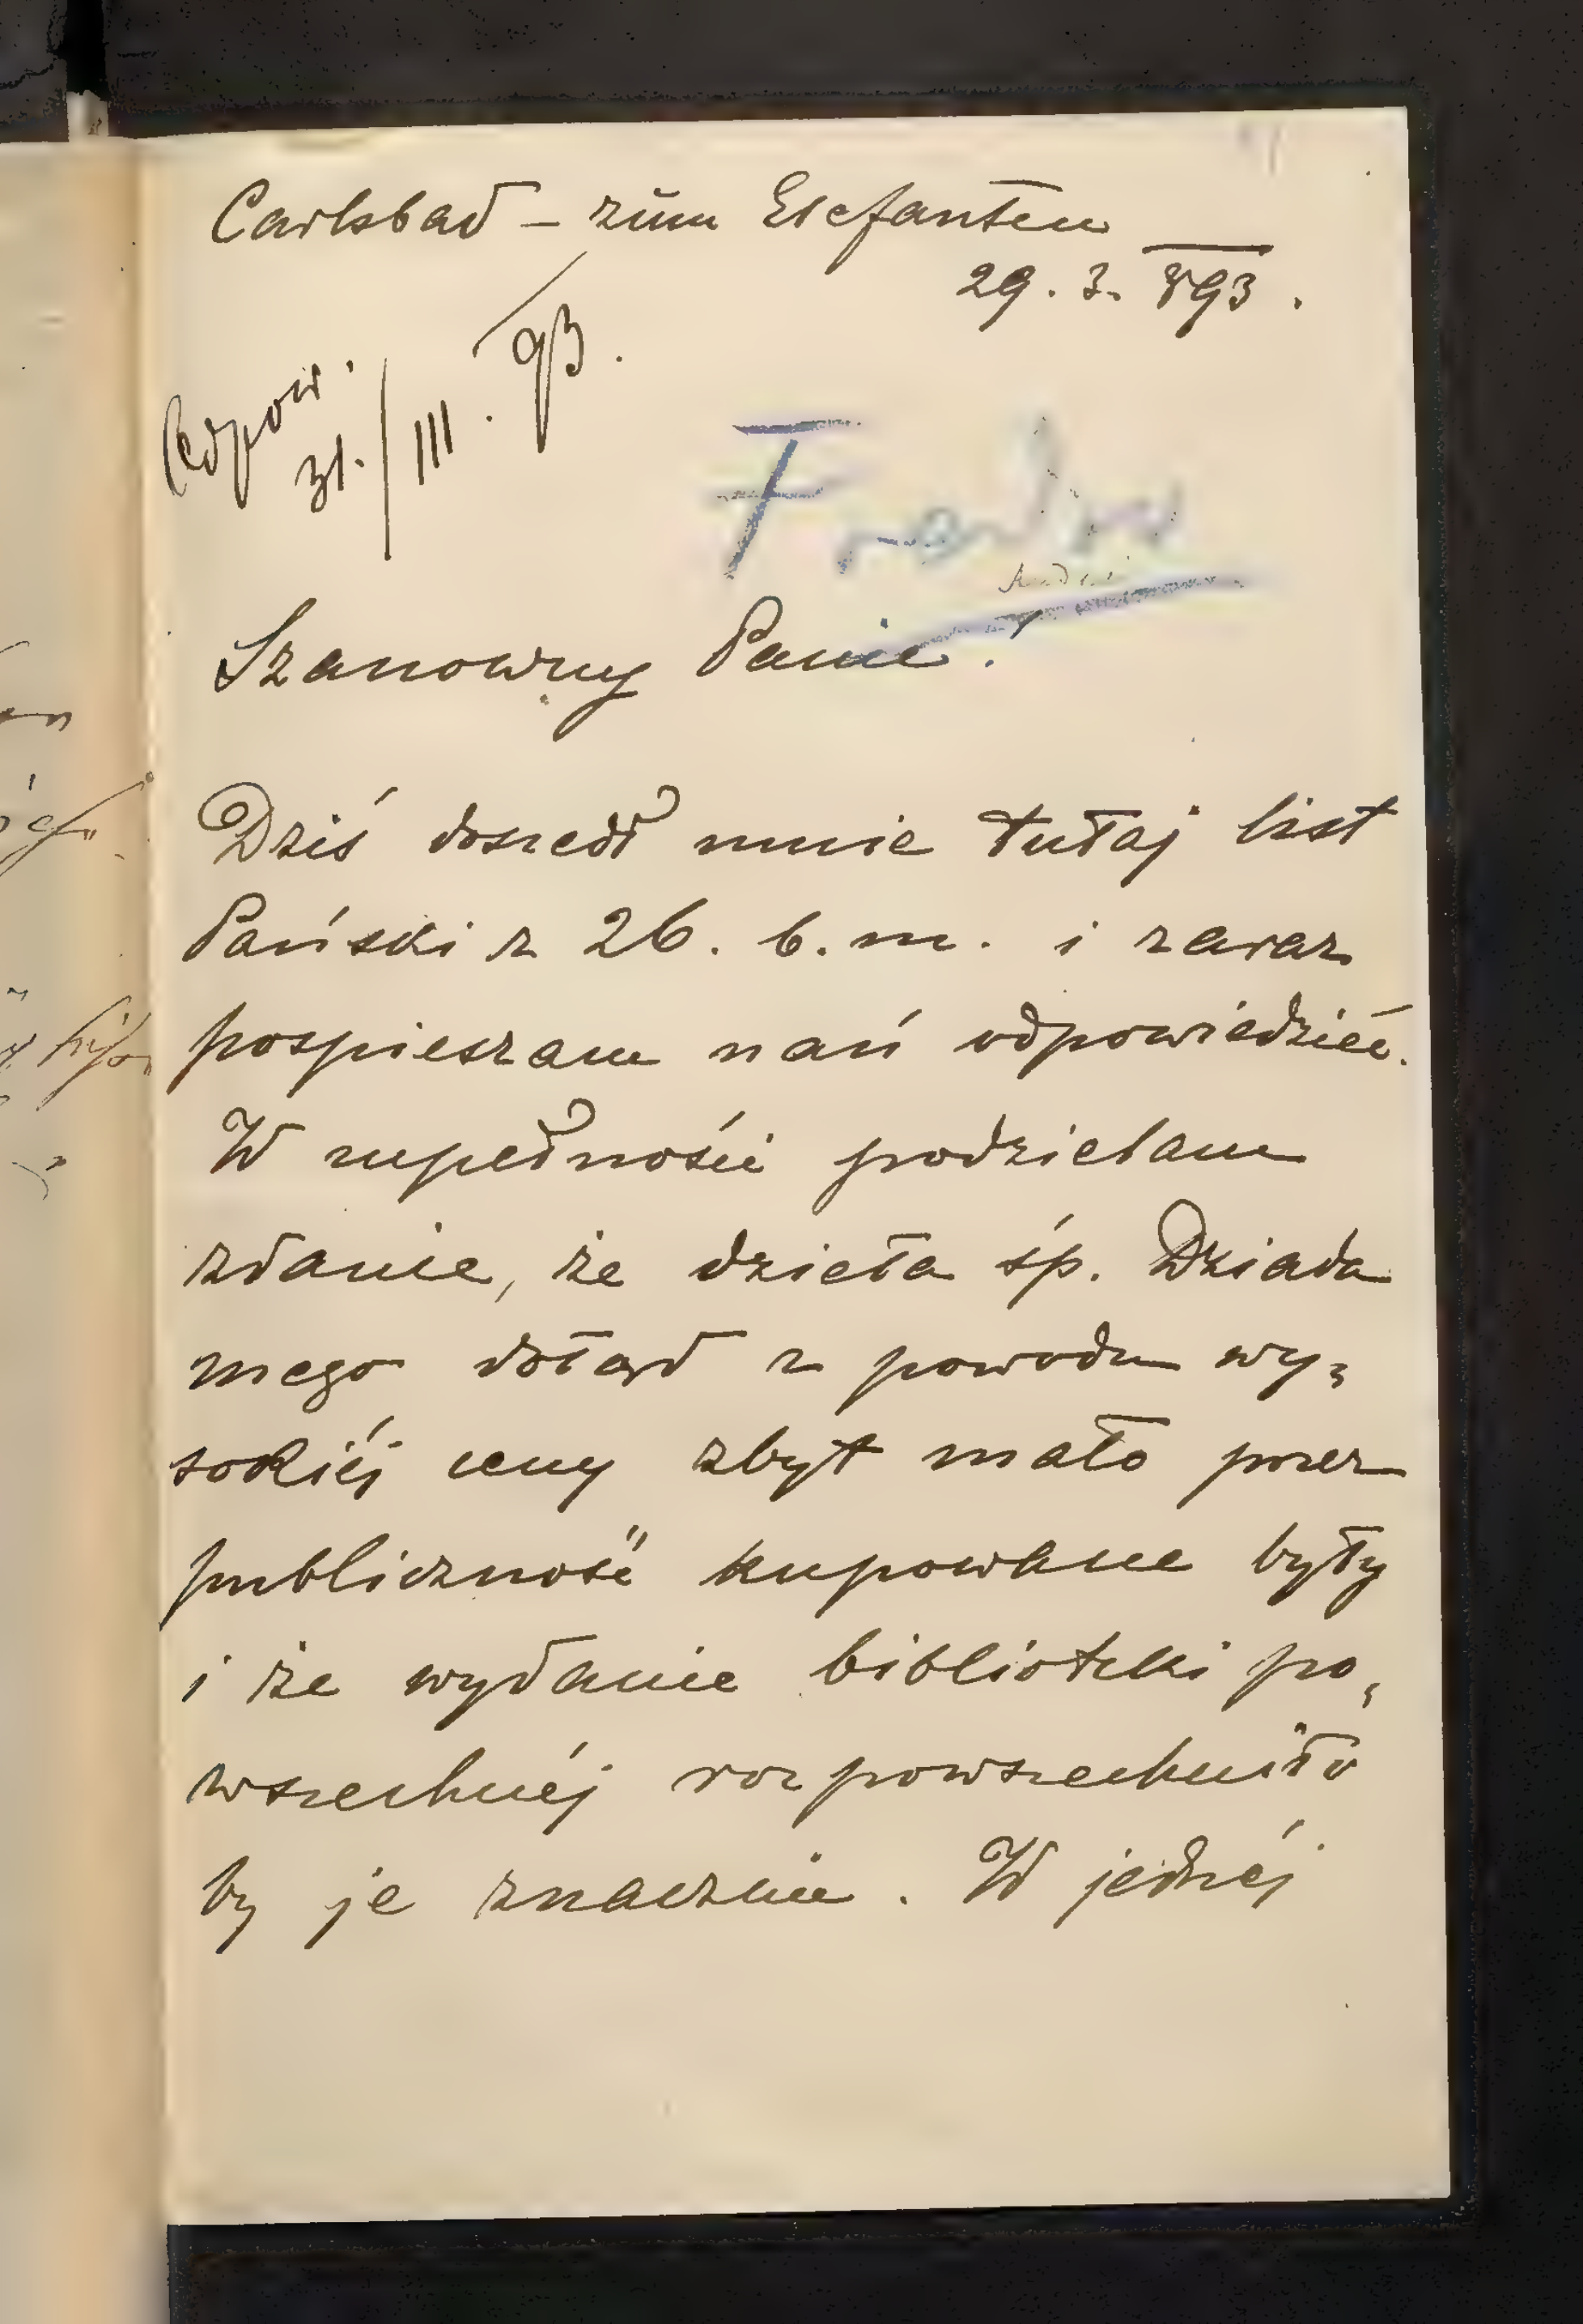 Carlsbad – zum Elefanten
29. 3. 893.
Odpow.
31./III. 93.
Fredro
Szanowny Panie!
Dziś doszedł mnie tutaj list
Pański z 26. b. m. i zaraz
pospieszam nań odpowiedzieć.
W zupełności podzielam
zdanie, że dzieła śp. Dziada
mego dotąd z powodu wy,
sokiéj ceny zbyt mało przez
publiczność kupowane były
i że wydanie biblioteki po,
wszechnéj rozpowszechniło
by je znacznie. W jednéj